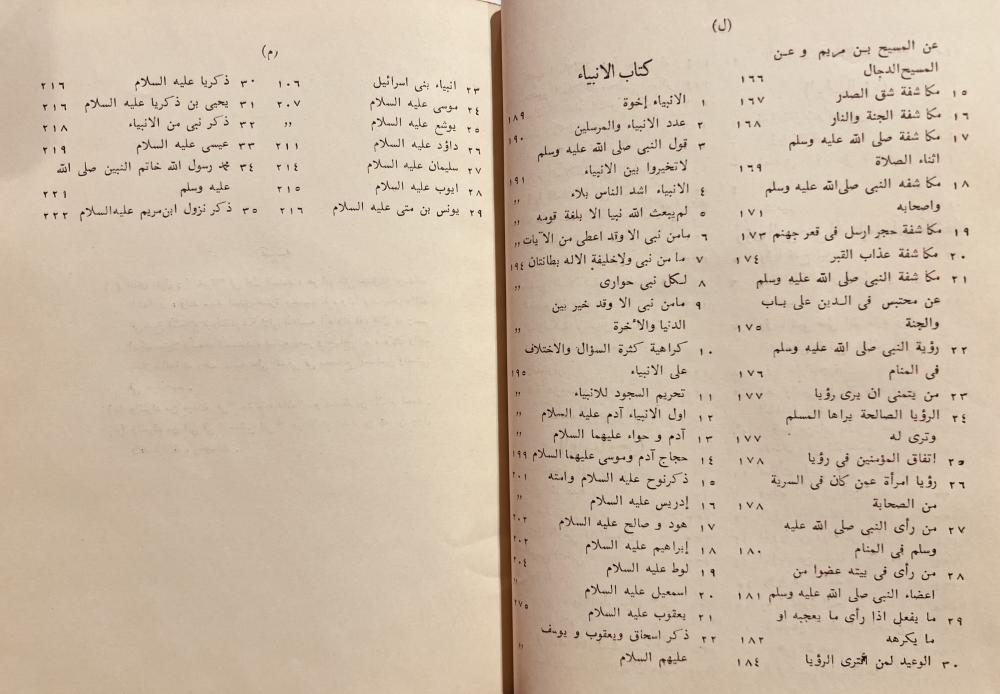 (ل)
عن المسيح بن مريم و عن
المسيح الدجال ١٦٦
١٥ مكاشفة شق الصدر ١٦٧
١٦ مكاشفة الجنة والنار ١٦٨
١٧ مكاشفة صلى الله عليه وسلم
اثناء الصلاة ١٦٩
١٨ مكاشفه النبى صلى الله عليه وسلم
واصحابه ١٧١
١٩ مكاشفة حجر ارسل فى قعر جهنم ١٧٣
٢٠ مكاشفة عذاب القبر ١٧٤
٢١ مكاشفة النبى صلى الله عليه وسلم
عن محتبس فى الدين على باب
والجنة ١٧٥
٢٢ رؤية النبى صلى الله عليه وسلم
فى المنام ١٧٦
٢٣ من يتمنى ان يرى رؤيا ١٧٧
٢٤ الرؤيا الصالحة يراها المسلم
وترى له ١٧٧
٢٥ اتفاق المؤمنين فى رؤيا ١٧٨
٢٦ رؤيا امرأة عمن كان فى السرية
من الصحابة ١٧٨
٢٧ من رأى النبى صلى الله عليه
وسلم فى المنام ١٨٠
٢٨ من رأى فى بيته عضوا من
اعضاء النبى صلى الله عليه وسلم ١٨١
٢٩ ما يفعل اذا رأى ما يعجبه او
ما يكرهه ١٨٢
٣٠ الوعيد لمن افترى الرؤيا ١٨٤
كتاب الانبياء
١ الانبياء إخوة ١٨٩
٢ عدد الانبياء والمرسلين ١٩٠
٣ قول النبى صلى الله عليه وسلم
لاتخيروا بين الانبياء ١٩١
٤ الانبياء اشد الناس بلاء „
٥ لم يبعث الله نبيا الا بلغة قومه „
٦ مامن نبى الا وقد اعطى من الآيات „
٧ ما من نبى ولاخليفة الاله بطانتان ١٩٤
٨ لكل نبى حوارى „
٩ مامن نبى الا وقد خير بين
الدنيا والأخرة „
١٠ كراهية كثرة السؤال والاختلاف
على الانبياء ١٩٥
١١ تحريم السجود للانبياء „
١٢ اول الانبياء آدم عليه السلام „
١٣ آدم و حواء عليهما السلام „
١٤ حجاج آدم وموسى عليهما السلام ١٩٩
١٥ ذكر نوح عليه السلام وامته ٢٠١
١٦ إدريس عليه السلام „
١٧ هود و صالح عليه السلام ٢٠٢
١٨ إبراهيم عليه السلام ٢٠٢
١٩ لوط عليه السلام ٢٠٤
٢٠ اسمعيل عليه السلام „
٢١ يعقوب عليه السلام ٢٧٥
٢٢ ذكر اسحاق ويعقوب و يوسف
عليهم السلام „
(م)
٢٣ انبياء بنى اسرائيل ١٠٦
٢٤ موسى عليه السلام ٢٠٧
٢٥ يوشع عليه السلام „
٢٦ داؤد عليه السلام ٢١١
٢٧ سليمان عليه السلام ٢١٤
٢٨ ايوب عليه السلام ٢١٥
٢٩ يونس بن متى عليه السلام ٢١٦
٣٠ ذكريا عليه السلام ٢١٦
٣١ يحيى بن ذكريا عليه السلام ٢١٦
٣٢ ذكر نبى من الانبياء ٢١٨
٣٣ عيسى عليه السلام ٢١٩
٣٤ محمد رسول الله خاتم النبين صلى الله
عليه وسلم ٢٢١
٣٥ ذكر نزول ابن مريم عليه السلام ٢٢٢